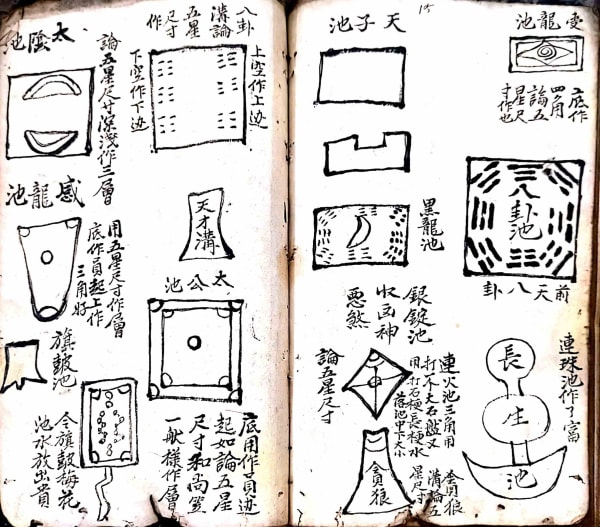 15
愛龍池
底作
四角
論五
星尺
寸作也
天子池
八卦池
前天八卦
黑龍池
銀錠池
收凶神
惡煞
連珠池作了富
長
生
池
連火池三角用
打不大石
用打石梗長梗水
落池中下大小
星尺寸
論五星尺寸
貪狼
貪狼
溝論五
八卦
溝論
五星
尺寸
作
上空作上迹
下空作下迹
太陰池
論五星尺寸深淺作三層
天才溝
感龍池
用五星尺寸作層
底作員起上作
三角好
太公池
底用作員迹
起如論五星
尺寸和尚笠
一般樣作層
旗鼓池
令旗鼓梅花
池水放出貴